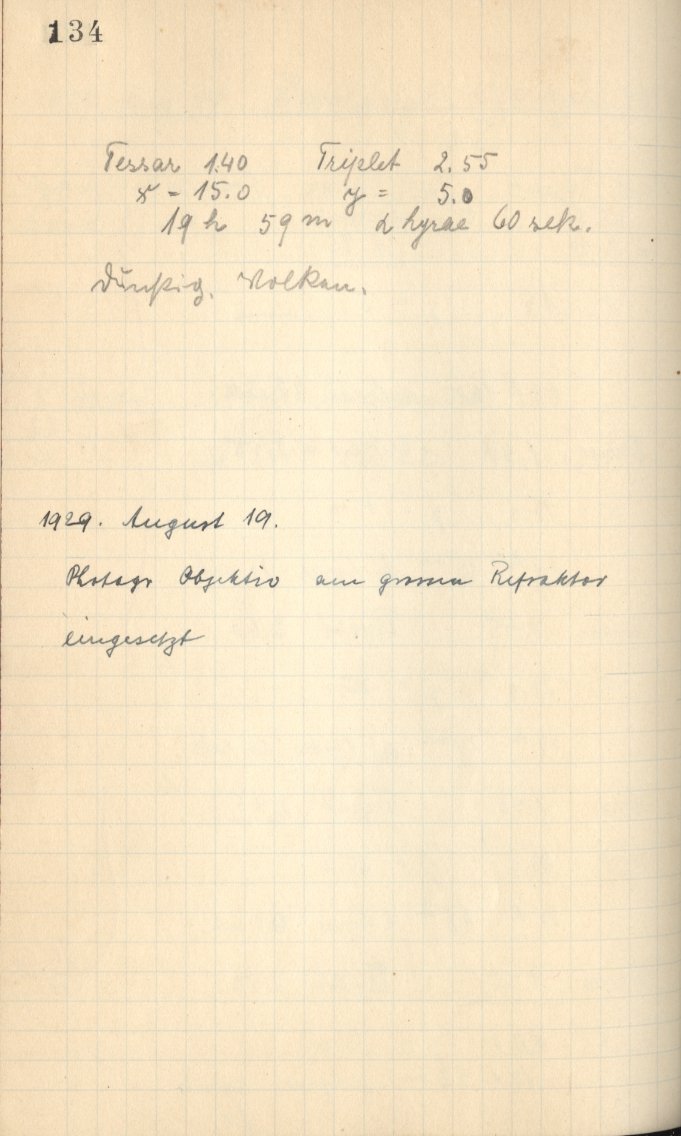 134
Tessar 1.40 Triplet 2.55
x - 15.0 y = 5.0
19 h 59 m α hyrae 60 sek.
Dunstig. Wolken.
1929. August 19.
Photogr Objektiv am grossen Refraktor
eingesetzt